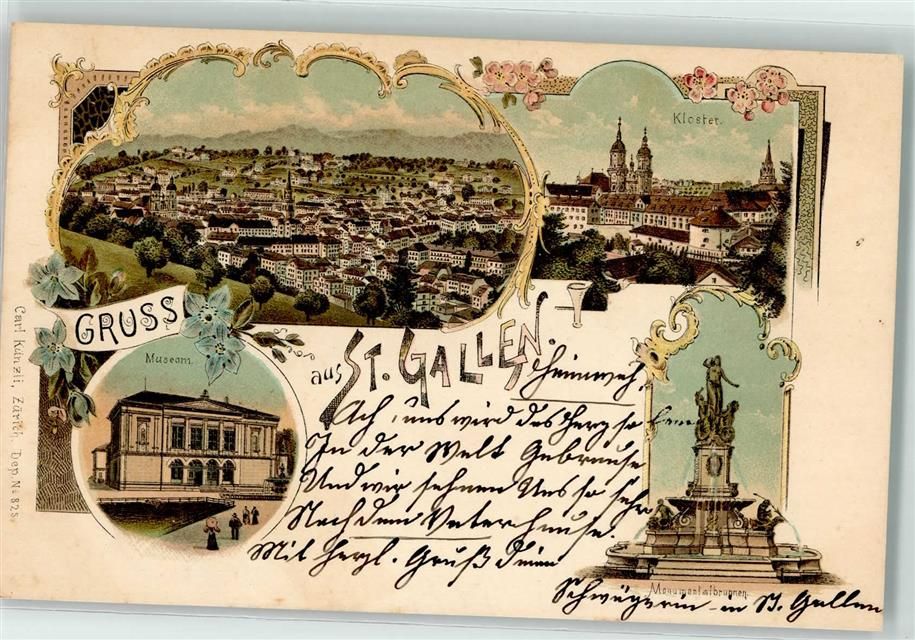 Kloster.
GRUSS
aus ST. GALLEN.
Museum.
Heimweh.
Ach, uns wird das Herz so
In der Welt Gebrause
Und wir sehnen Uns so sehr
Nach dem Vaterhause.
Mit herzl. Gruß deine
Schwägerin in St. Gallen
Monumentalbrunnen.
Carl Künzli, Zürich, Dep. No 825.